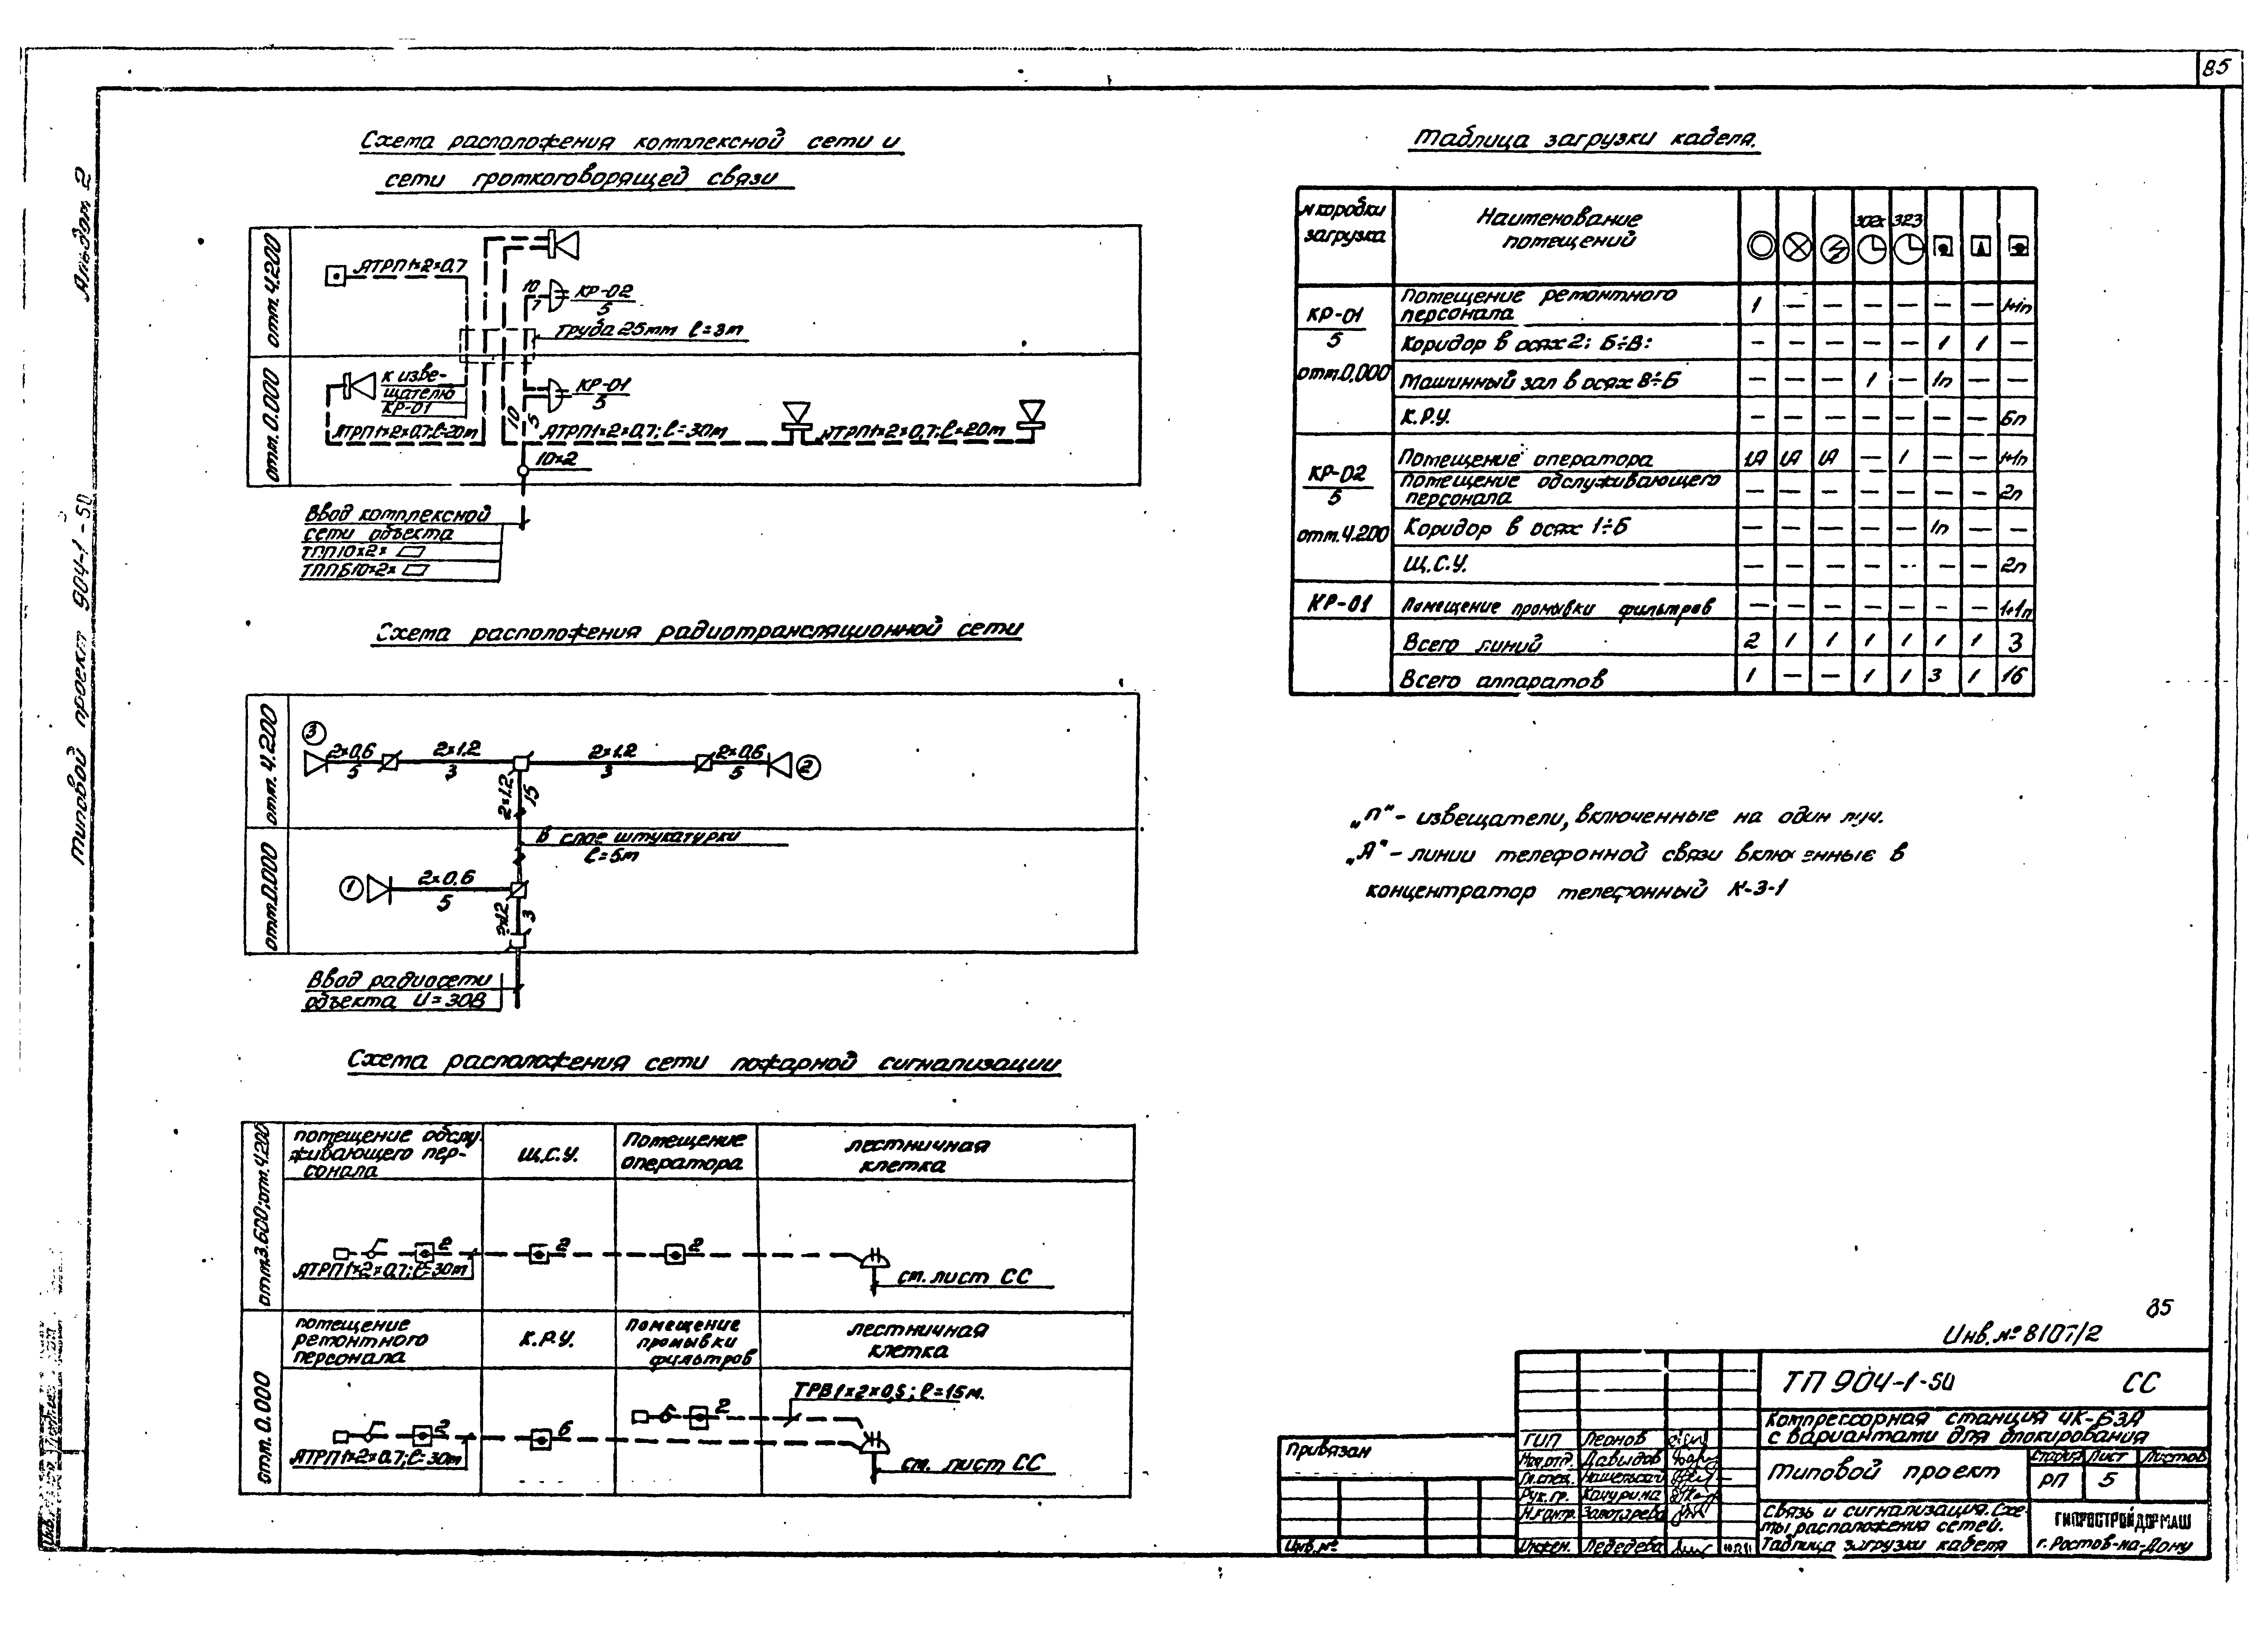 85
Альбом 2
Типовой проект 904-1-50
Схема расположения комплексной сети и
сети громкоговорящей связи
отм. 4.200
АТРП1×2×0,7
10
7
КР-02
5
Труба 25мм ℓ=3м
отм. 0.000
к изве-
щателю
КР-01
КР-01
5
10
5
АТРП1×2×0,7; ℓ=20м
АТРП1×2×0,7; ℓ=30м
АТРП1×2×0,7; ℓ=20м
10×2
Ввод комплексной
сети объекта
ТПП10×2×
ТППБ10×2×
Схема расположения радиотрансляционной сети
отм. 4.200
3
2×0,6
5
2×1.2
3
2×1.2
3
2×0,6
5
2
2×1.2
15
В слое штукатурки
ℓ=5м
отм.0.000
1
2×0.6
5
2×1.2
3
Ввод радиосети
объекта U=30В
Схема расположения сети пожарной сигнализации
отм.3.600; отм.4.200
помещение обслу-
живающего пер-
сонала
Щ.С.У.
Помещение
оператора
лестничная
клетка
2
2
2
АТРП1×2×0,7; ℓ=30м
см. лист СС
отм. 0.000
помещение
ремонтного
персонала
К.Р.У.
Помещение
промывки
фильтров
лестничная
клетка
ТРВ1×2×0,5; ℓ=15м.
2
6
2
АТРП1×2×0,7; ℓ=30м
см. лист СС
Таблица загрузки кабеля.
№ коробки
загрузка
Наименование
помещений
302х
323
КР-01
5
отм.0,000
Помещение ремонтного
персонала
1 — — — — — — 1+1п
Коридор в осях 2; Б÷В:
— — — — — 1 1 —
Машинный зал в осях В÷Б
— — — 1 — 1п — —
К.Р.У.
— — — — — — — 6п
КР-02
5
отм.4.200
Помещение оператора
1А 1А 1А — 1 — — 1+1п
Помещение обслуживающего
персонала
— — — — — — — 2п
Коридор в осях 1÷Б
— — — — — 1п — —
Щ.С.У.
— — — — — — — 2п
КР-01
Помещение промывки фильтров
— — — — — — — 1+1п
Всего линий
2 1 1 1 1 1 1 3
Всего аппаратов
1 — — 1 1 3 1 16
„п“ - извещатели, включенные на один луч.
„А“ - линии телефонной связи включенные в
концентратор телефонный К-3-1
85
Инв. № 8107/2
ТП 904-1-50 СС
Компрессорная станция 4К-63А
с вариантами для блокирования
Типовой проект
Стадия Лист Листов
РП 5
Связь и сигнализация. Схе-
мы расположения сетей.
Таблица загрузки кабеля
ГИПРОСТРОЙДОРМАШ
г. Ростов-на-Дону
Привязан
Инв.№
ГИП Леонов
Нач.отд. Давыдов
Гл.спец.
Рук.гр. Качурина
Н.контр. Золотарева
Инжен. Лебедева